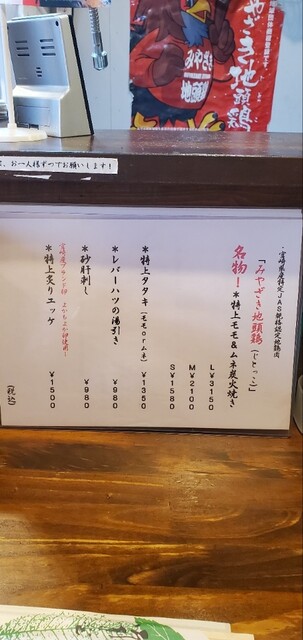 みやざき地頭鶏
みやざき
地頭鶏
お一人様ずつでお願いします!
・宮崎県産特定JAS規格認定地鶏肉
「みやざき地頭鶏(じとっこ)」
名物!*特上モモ&ムネ炭火焼き
L¥3150
M¥2100
S¥1580
*特上タタキ(モモorムネ)¥1350
*レバーハツの湯引き¥980
*砂肝刺し¥980
宮崎産ブランド卵
よかもよか卵使用!
*特上炙りユッケ¥1500
(税込)